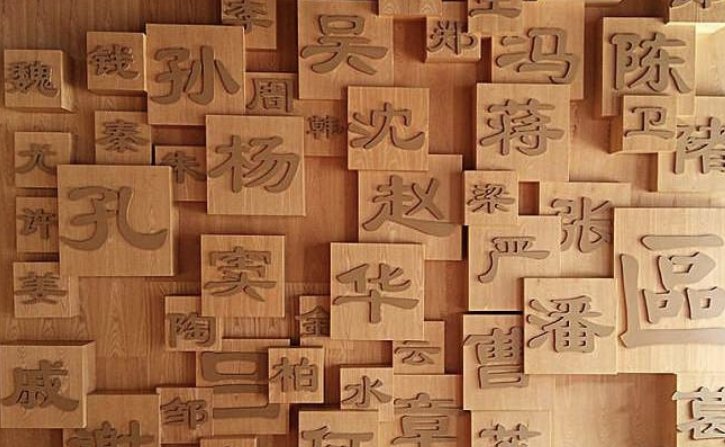 李
吴
郑
冯
陈
魏
钱
孙
周
韩
沈
蒋
卫
褚
尤
秦
朱
杨
孔
许
赵
梁
张
严
姜
窦
华
區
陶
金
潘
云
曹
戚
柏
水
邹
吕
谢
何
章
葛
苏